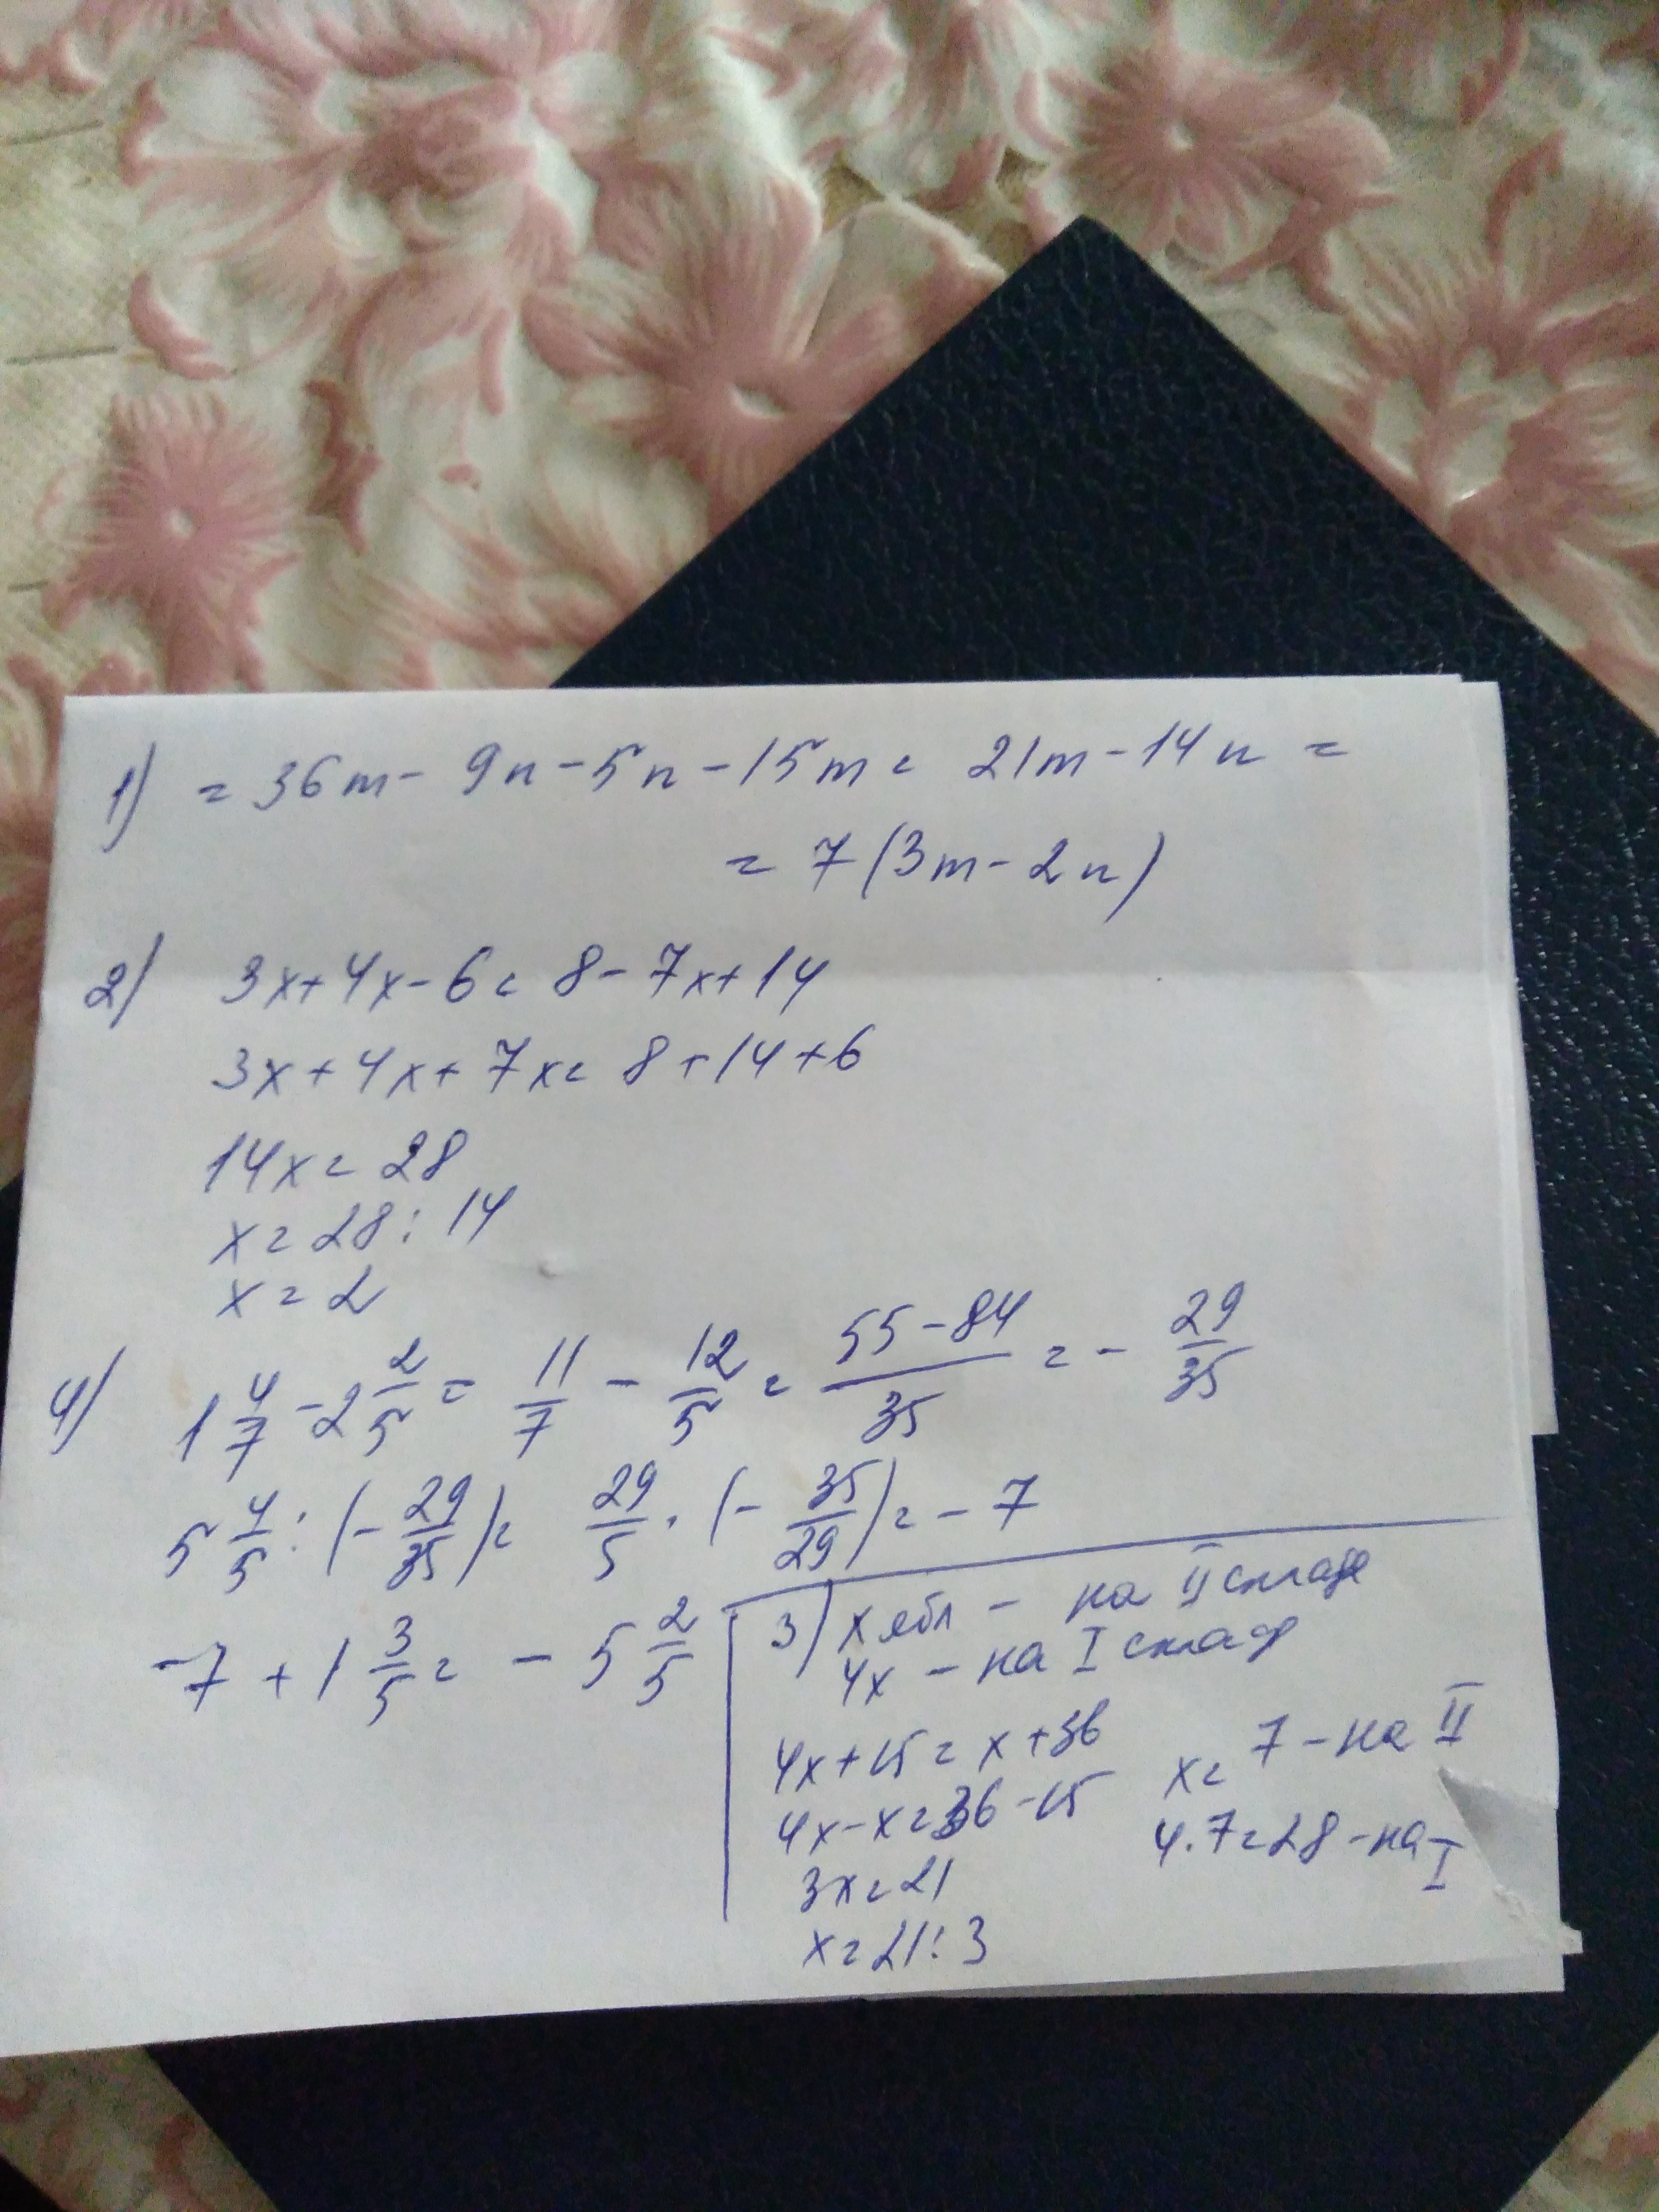 1) = 36m - 9n - 5n - 15m = 21m - 14n =
= 7(3m - 2n)
2) 3x + 4x - 6 = 8 - 7x + 14
3x + 4x + 7x = 8 + 14 + 6
14x = 28
x = 28 : 14
x = 2
4) 1 4/7 - 2 2/5 = 11/7 - 12/5 = (55 - 84)/35 = - 29/35
5 4/5 : (- 29/35) = 29/5 · (- 35/29) = - 7
-7 + 1 3/5 = - 5 2/5
3) x ябл - на II складе
4x - на I складе
4x + 15 = x + 36
4x - x = 36 - 15
3x = 21
x = 21 : 3
x = 7 - на II
4 · 7 = 28 - на I